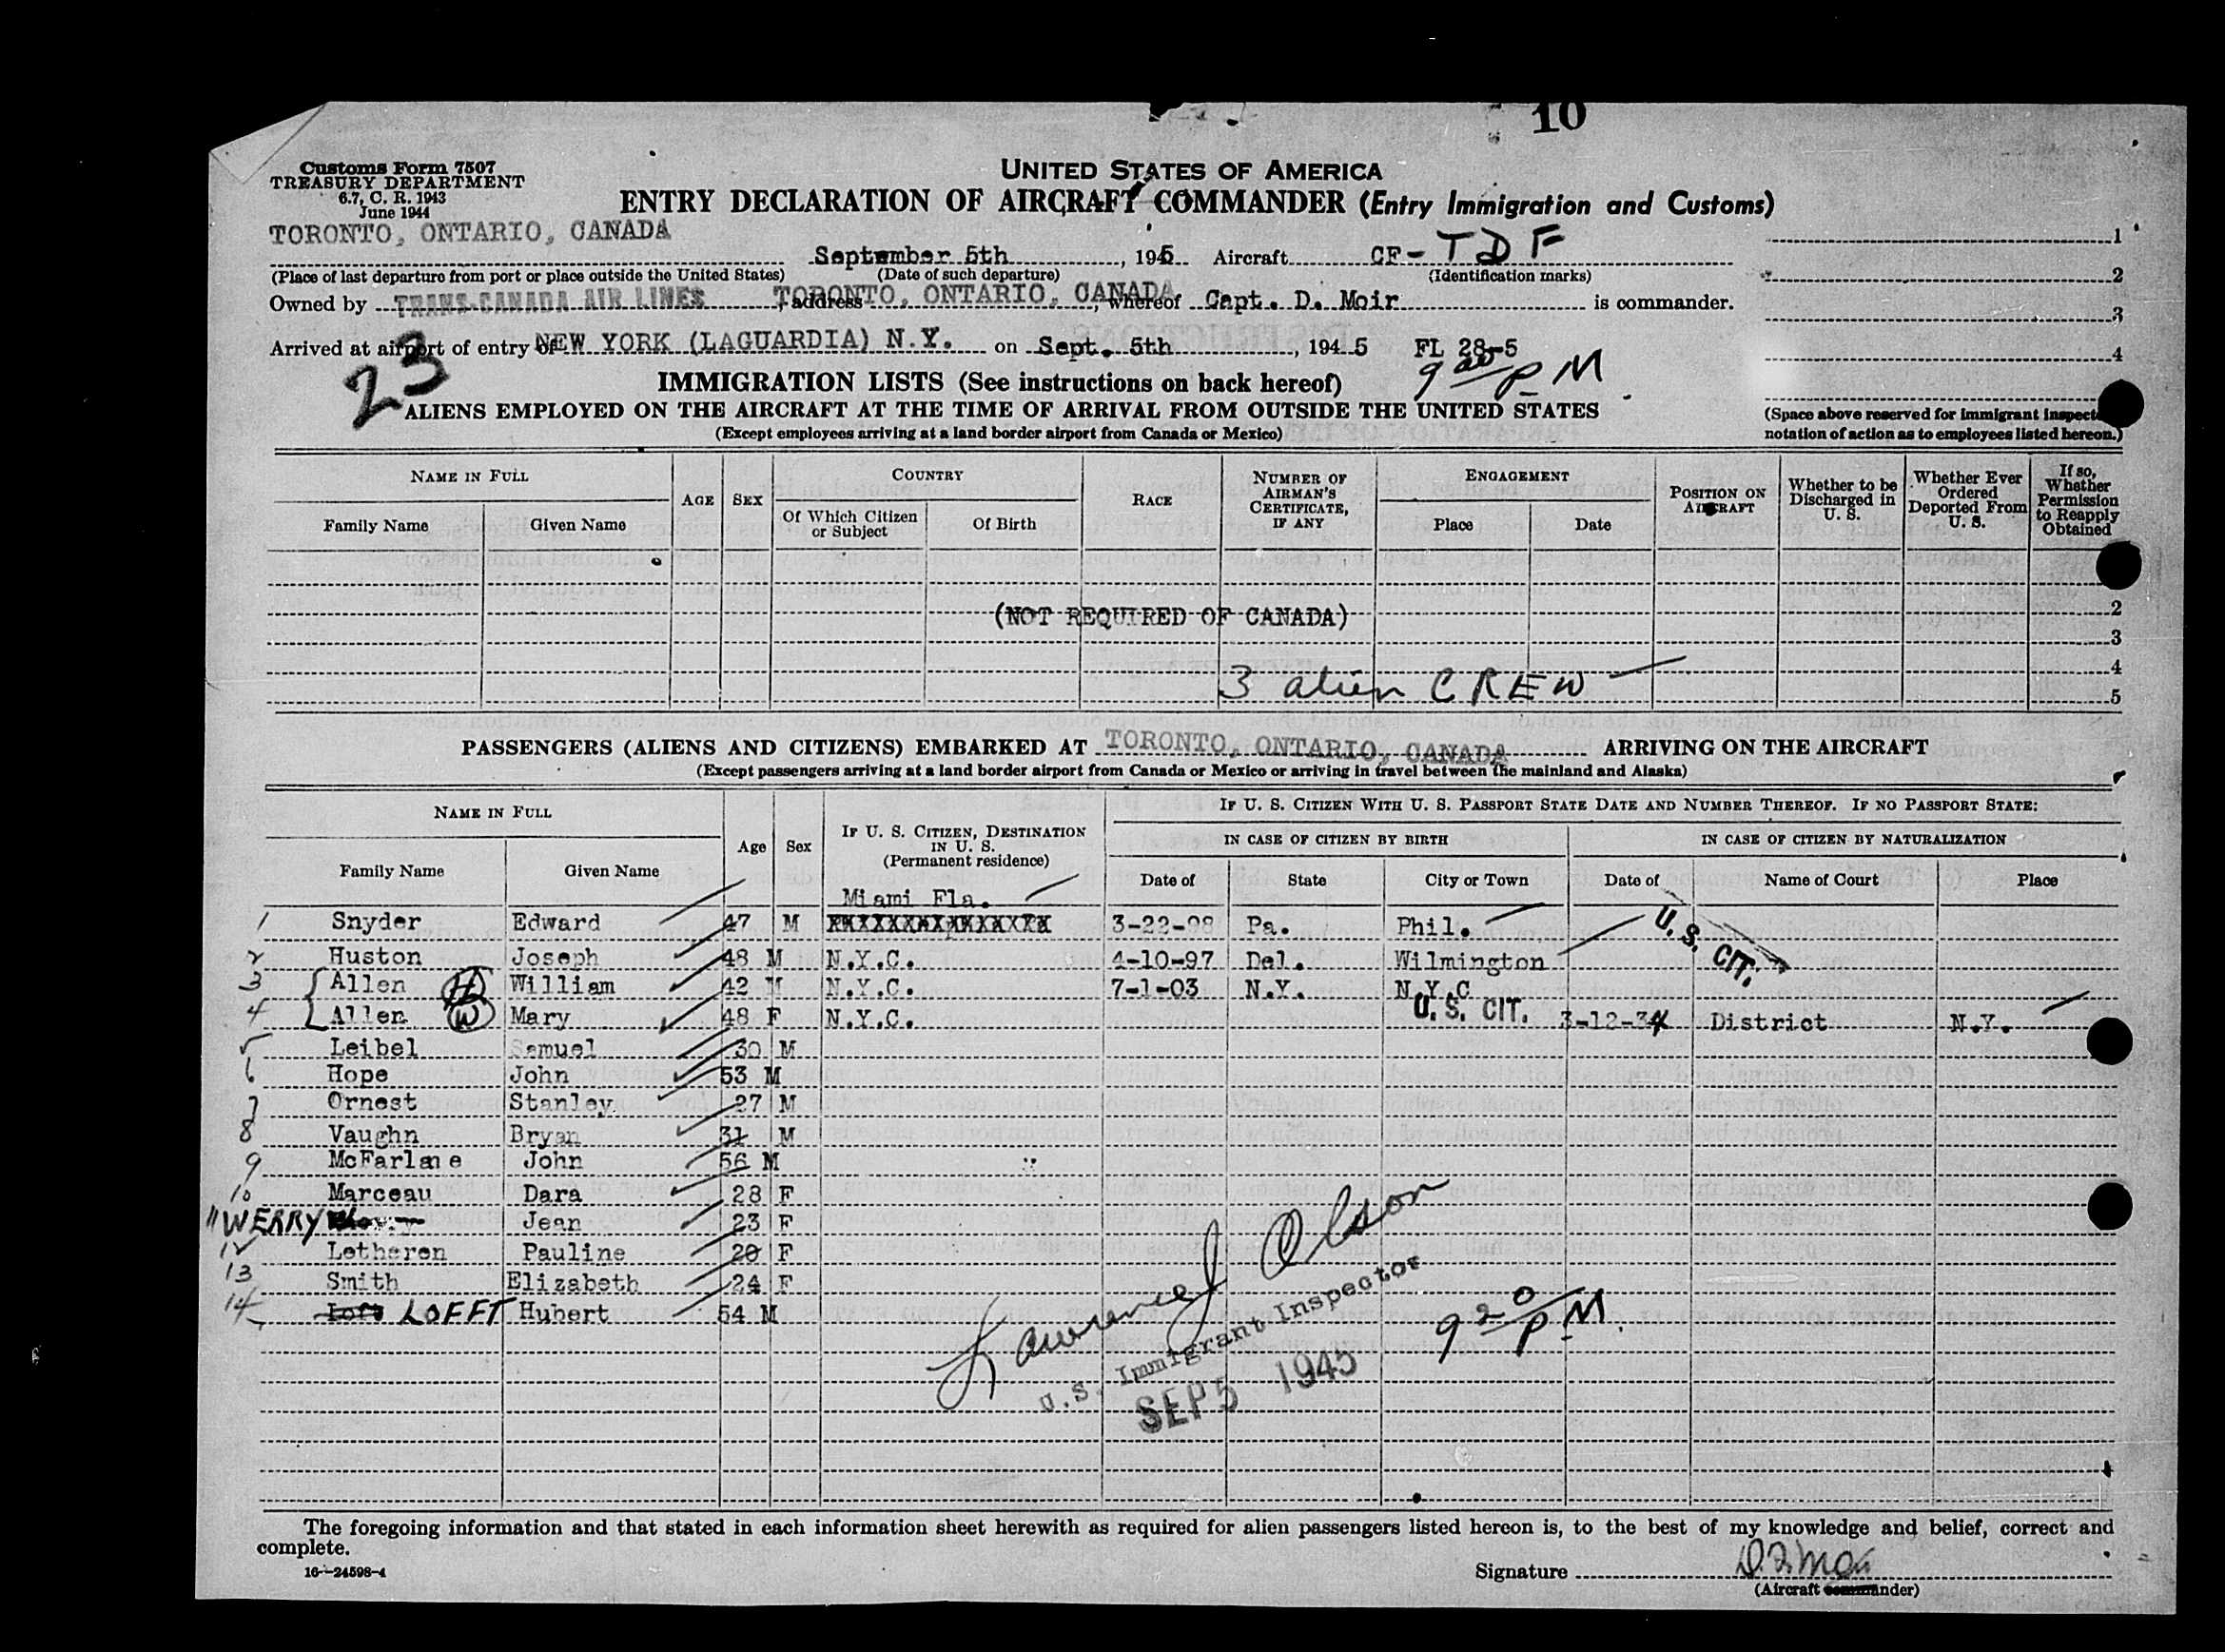 10
Customs Form 7507
TREASURY DEPARTMENT
6.7, C. R. 1943
June 1944
UNITED STATES OF AMERICA
ENTRY DECLARATION OF AIRCRAFT COMMANDER (Entry Immigration and Customs)
TORONTO, ONTARIO, CANADA September 5th, 1945 Aircraft CF-TDF
(Place of last departure from port or place outside the United States) (Date of such departure) (Identification marks)
Owned by TRANS-CANADA AIR LINES, address TORONTO, ONTARIO, CANADA, whereof Capt. D. Moir is commander.
Arrived at airport of entry of NEW YORK (LAGUARDIA) N.Y. on Sept. 5th, 1945 FL 28-5
23
9 20 PM
1
2
3
4
(Space above reserved for immigrant inspect
notation of action as to employees listed hereon.)
IMMIGRATION LISTS (See instructions on back hereof)
ALIENS EMPLOYED ON THE AIRCRAFT AT THE TIME OF ARRIVAL FROM OUTSIDE THE UNITED STATES
(Except employees arriving at a land border airport from Canada or Mexico)
NAME IN FULL
Family Name Given Name
AGE SEX
COUNTRY
Of Which Citizen or Subject Of Birth
RACE
NUMBER OF AIRMAN'S CERTIFICATE, IF ANY
ENGAGEMENT
Place Date
POSITION ON AIRCRAFT
Whether to be Discharged in U. S.
Whether Ever Ordered Deported From U. S.
If so, Whether Permission to Reapply Obtained
(NOT REQUIRED OF CANADA)
2
3
4
5
3 alien CREW
PASSENGERS (ALIENS AND CITIZENS) EMBARKED AT TORONTO, ONTARIO, CANADA ARRIVING ON THE AIRCRAFT
(Except passengers arriving at a land border airport from Canada or Mexico or arriving in travel between the mainland and Alaska)
NAME IN FULL
Family Name Given Name
Age Sex
IF U. S. CITIZEN, DESTINATION IN U. S.
(Permanent residence)
IF U. S. CITIZEN WITH U. S. PASSPORT STATE DATE AND NUMBER THEREOF. IF NO PASSPORT STATE:
IN CASE OF CITIZEN BY BIRTH IN CASE OF CITIZEN BY NATURALIZATION
Date of State City or Town Date of Name of Court Place
Miami Fla.
1 Snyder Edward 47 M 3-22-98 Pa. Phil. U. S. CIT.
2 Huston Joseph 48 M N.Y.C. 4-10-97 Del. Wilmington
3 Allen H William 42 M N.Y.C. 7-1-03 N.Y. N.Y.C
4 Allen W Mary 48 F N.Y.C. U. S. CIT. 3-12-34 District N.Y.
5 Leibel Samuel 30 M
6 Hope John 53 M
7 Ornest Stanley 27 M
8 Vaughn Bryan 31 M
9 McFarlane John 56 M
10 Marceau Dara 28 F
11 WERRY Jean 23 F
12 Letheren Pauline 20 F
13 Smith Elizabeth 24 F
14 Loft LOFFT Hubert 54 M
Lawrence J Olson
U.S. Immigrant Inspector
SEP 5 1945
9 20 PM.
The foregoing information and that stated in each information sheet herewith as required for alien passengers listed hereon is, to the best of my knowledge and belief, correct and
complete.
16-24598-4
Signature
(Aircraft commander)